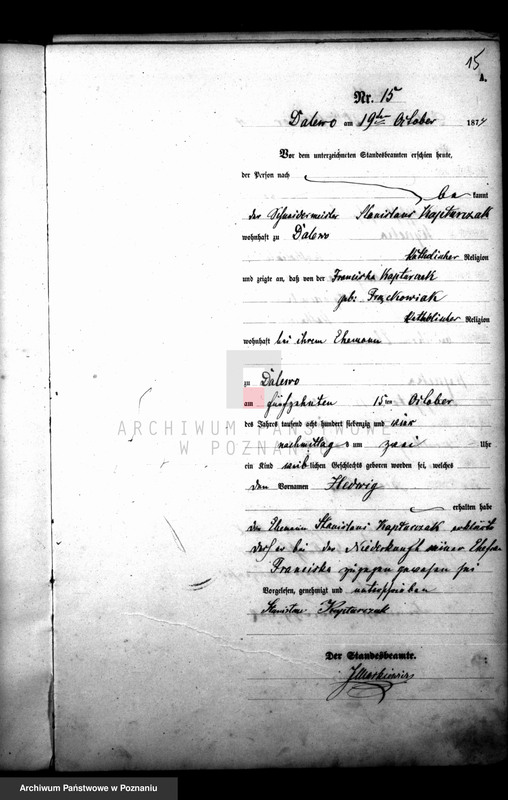 15
A.
Nr. 15
Dalewo am 19ten October 1874
Vor dem unterzeichneten Standesbeamten erschien heute,
der Person nach
bekannt
der Schneidermeister Stanislaus Kaptarczak
wohnhaft zu Dalewo
katholischer Religion
und zeigte an, daß von der Franciska Kaptarczak
geb: Frąckowiak
katholischer Religion
wohnhaft bei ihrem Ehemann
zu Dalewo
am fünfzehnten 15ten October
des Jahres tausend acht hundert siebenzig und vier
nachmittags um zwei Uhr
ein Kind weiblichen Geschlechts geboren worden sei, welches
den Vornamen Hedwig
erhalten habe
der Ehemann Stanislaus Kaptarczak erklärte
daß er bei der Niederkunft seiner Ehefrau
Franciska zugegen gewesen sei
Vorgelesen, genehmigt und unterschrieben
Stanisław Kaptarczak
Der Standesbeamte.
JMarkiewicz
ARCHIWUM PAŃSTWOWE
W POZNANIU
Archiwum Państwowe w Poznaniu